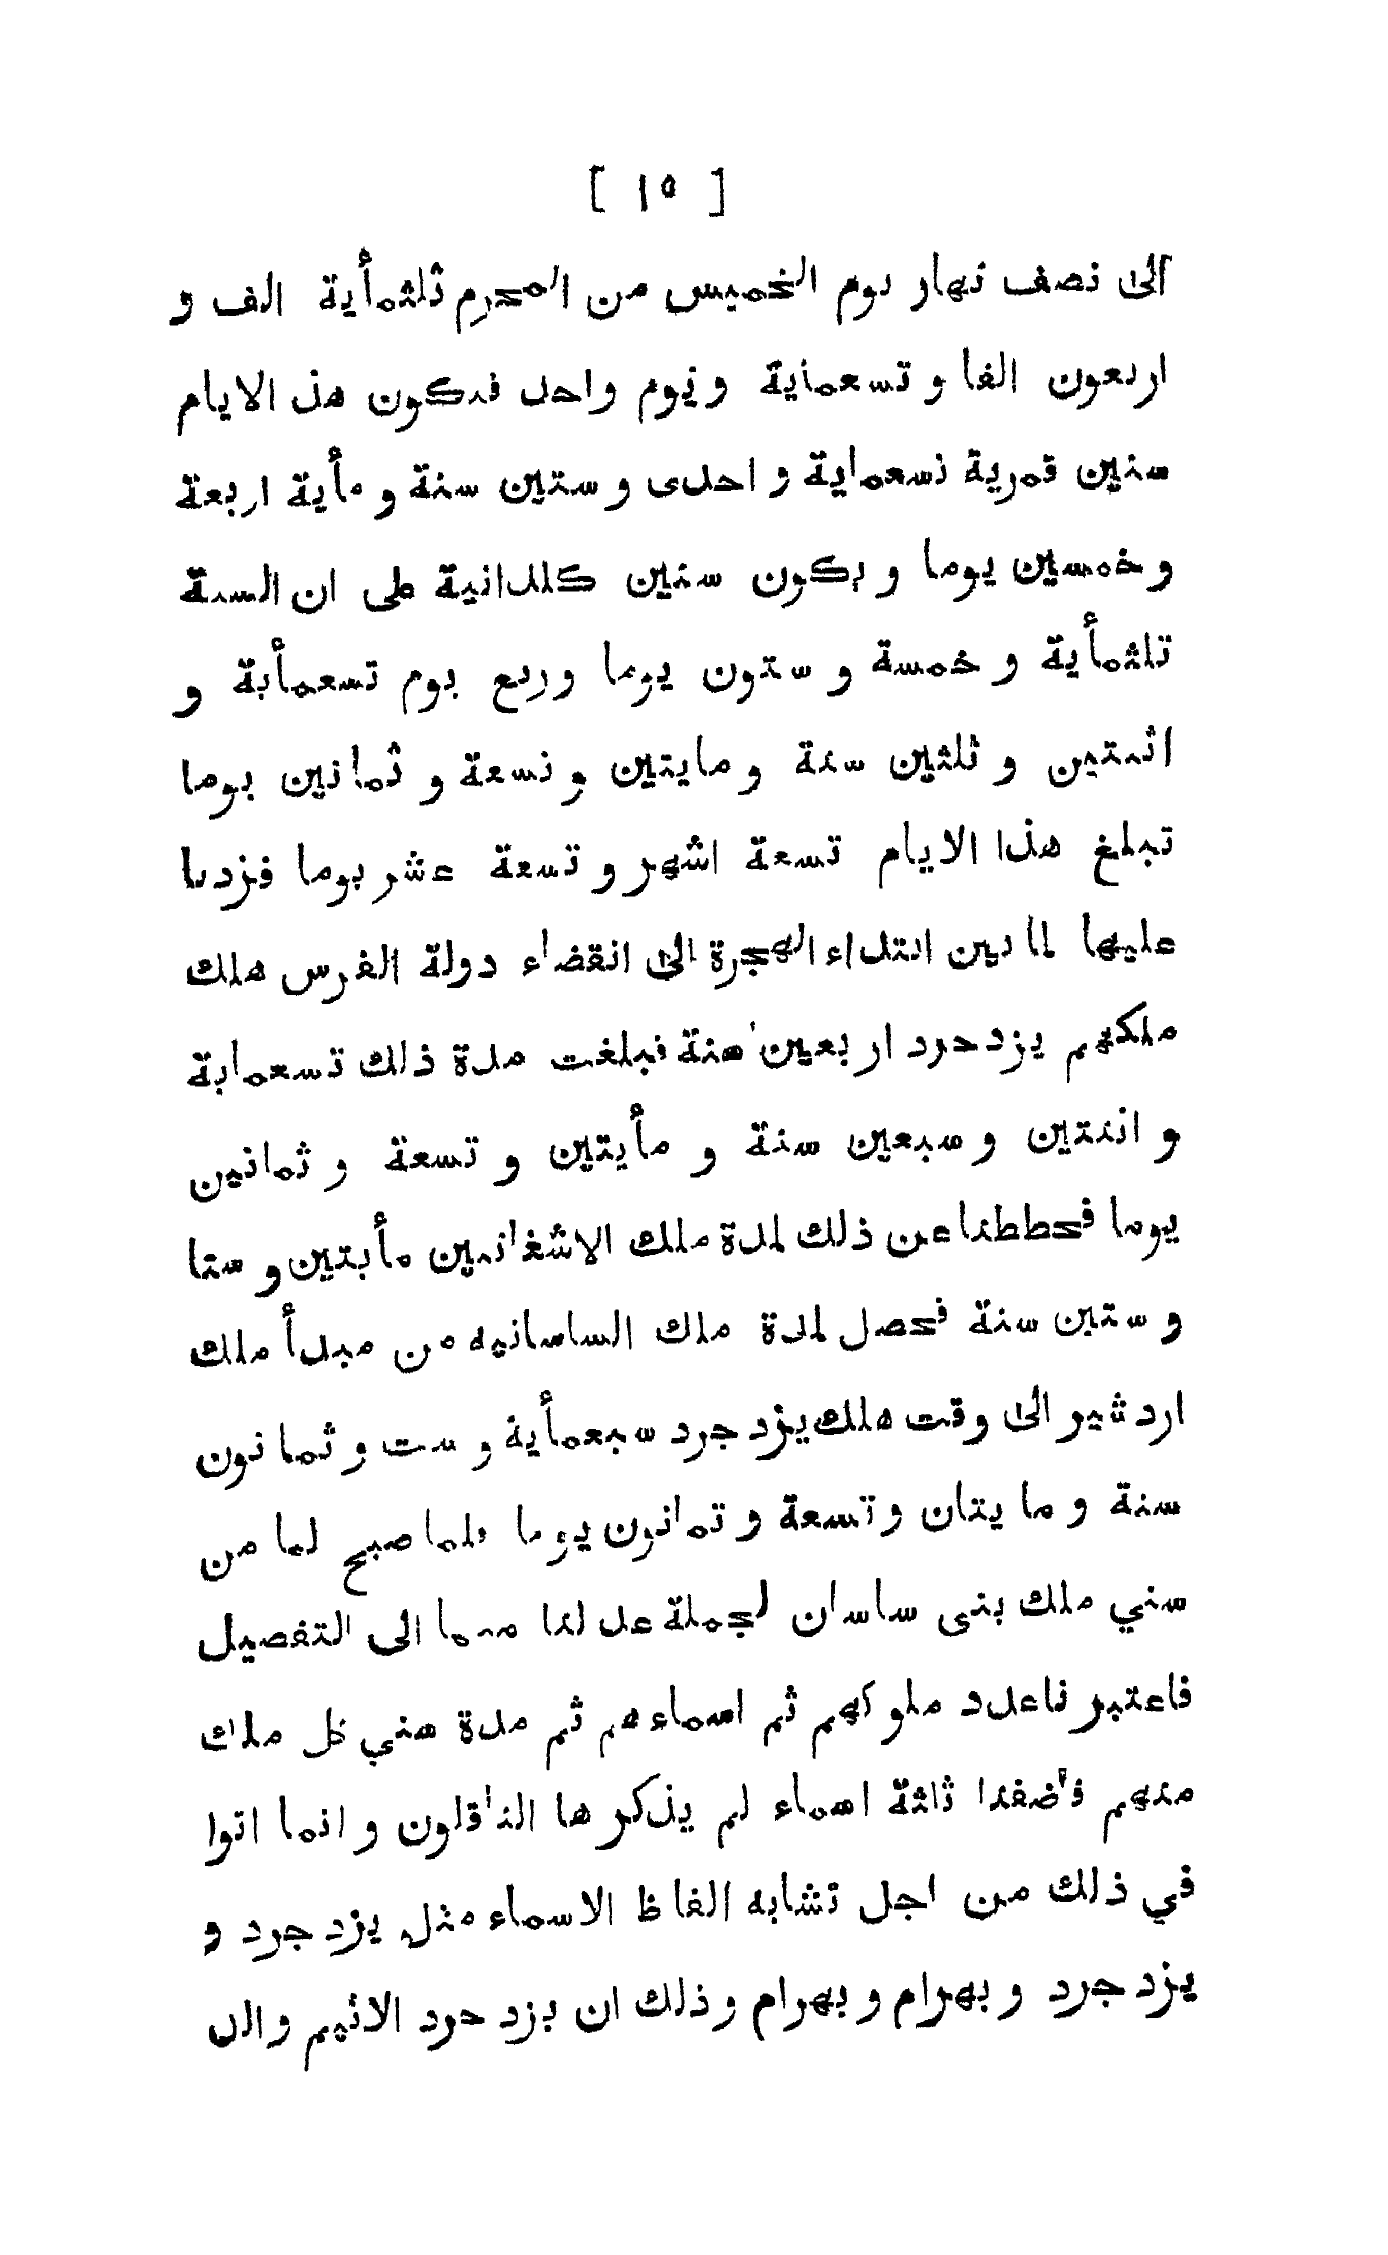 [ ١٥ ]
الى نصف نهار يوم الخميس من المحرم ثلثمأية الف و
اربعون الفا و تسعماية ويوم واحد فيكون هذ الايام
سنين قمرية تسعماية و احدى و ستين سنة و مأية اربعة
و خمسين يوما و يكون سنين كلدانية على ان السنة
ثلثمأية و خمسة و ستون يوما وربع يوم تسعمأية و
اثنتين و ثلثين سنة و مايتين و تسعة و ثمانين يوما
تبلغ هذا الايام تسعة اشهر و تسعة عشر يوما فزدنا
عليها لما بين ابتداء الهجرة الى انقضاء دولة الفرس هلك
ملكهم يزدجرد اربعين سنة فبلغت مدة ذلك تسعماية
و اثنتين و سبعين سنة و مأيتين و تسعة و ثمانين
يوما فحططنا عن ذلك لمدة ملك الاشغانيين مأيتين و ستا
و ستين سنة فحصل لمدة ملك الساسانيه من مبدأ ملك
اردشير الى وقت هلك يزدجرد سبعمأية و ست و ثمانون
سنة و مايتان و تسعة و ثمانون يوما فلما صبح لما من
سني ملك بنى ساسان لجملة عدلنا مهما الى التفصيل
فاعتبر ناعدد ملوكهم ثم اسماءهم ثم مدة سني كل ملك
منهم فأضفنا ثلثة اسماء لم يذكرها الناقلون و انما اتوا
في ذلك من اجل تشابه الفاظ الاسماء مثل يزدجرد و
يزدجرد و بهرام و بهرام و ذلك ان يزدجرد الاثيم والد